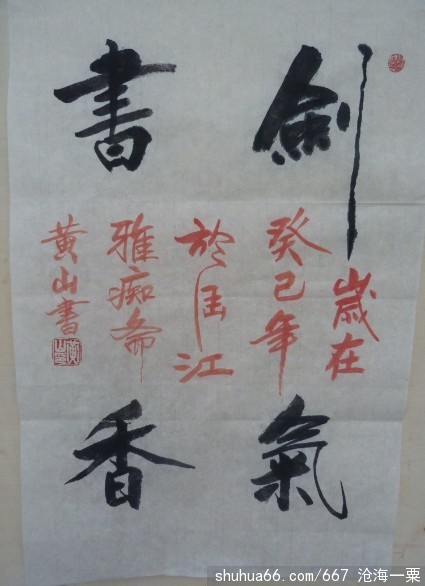 劍氣
書香
歲在
癸巳年
於江
雅痴斋
黄山書
shuhua66.com/667 沧海一粟